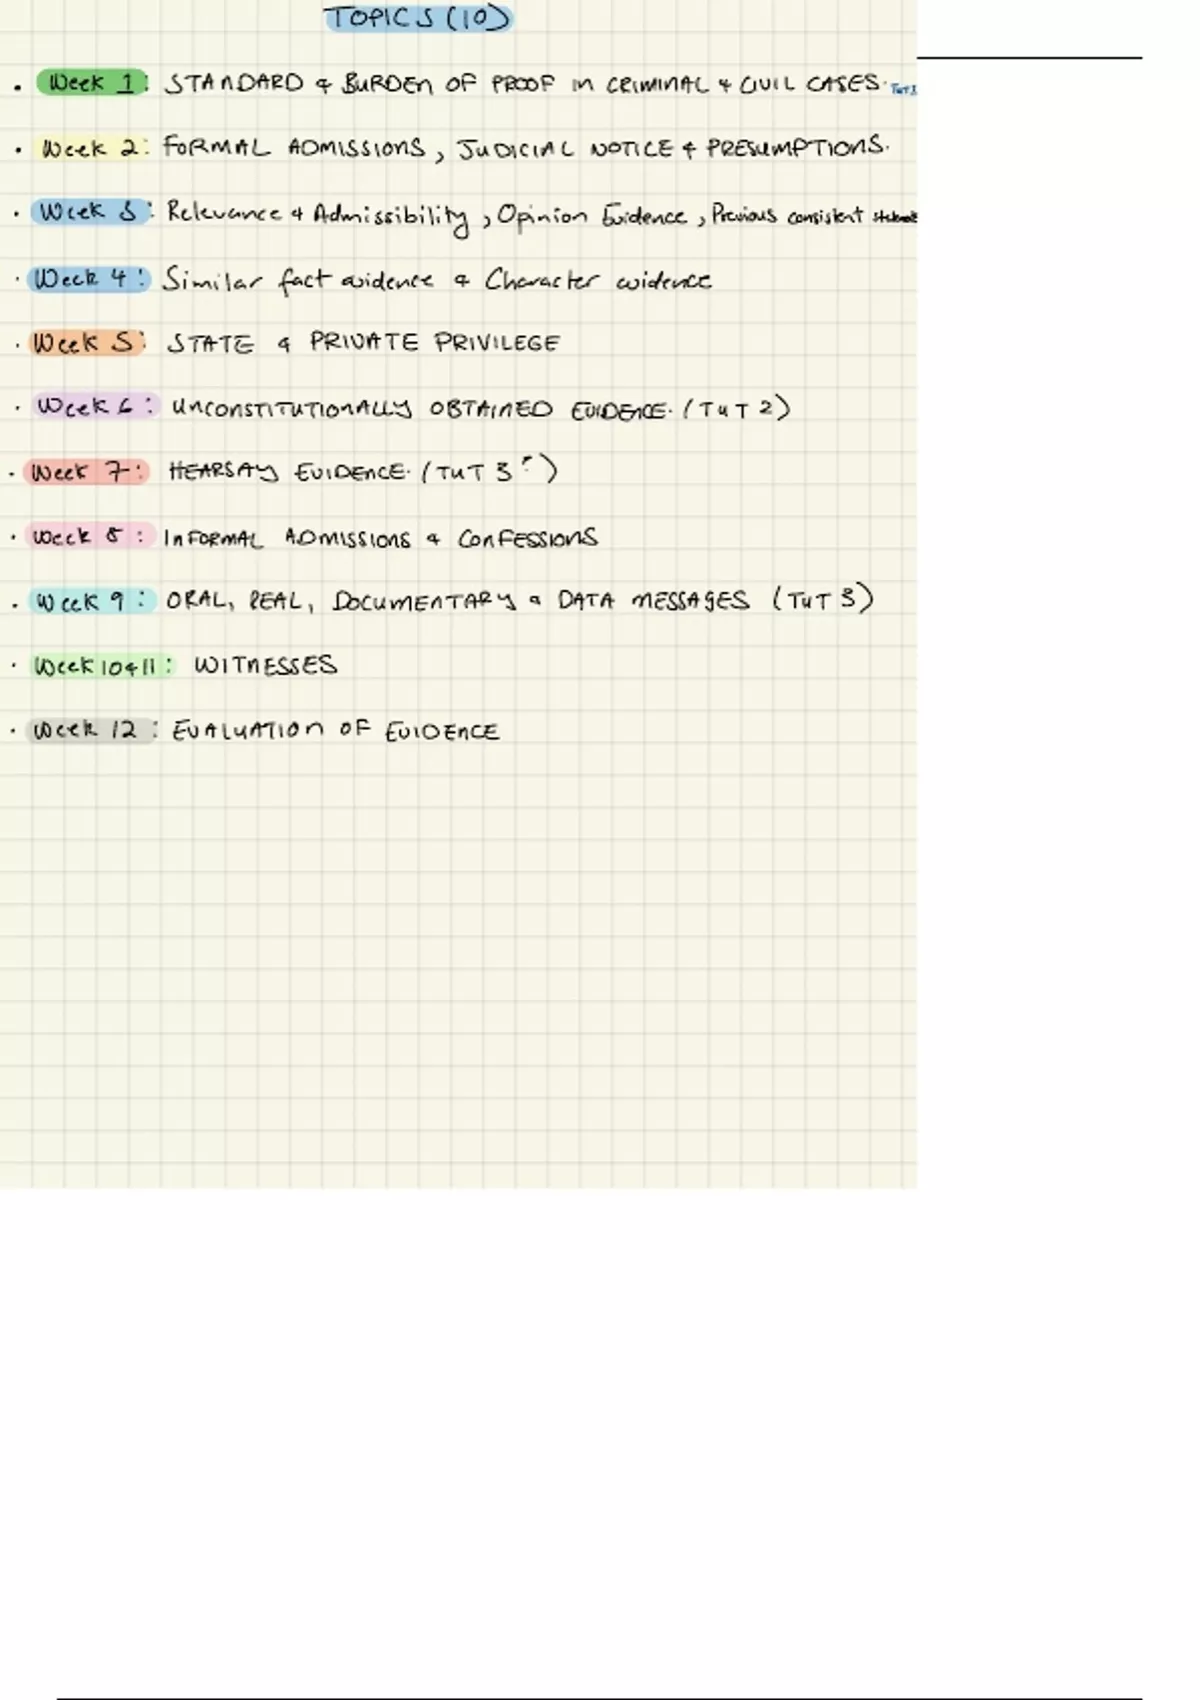 TOPICS (10)
• Week 1: STANDARD & BURDEN OF PROOF IN CRIMINAL & CIVIL CASES.
• Week 2: FORMAL ADMISSIONS, JUDICIAL NOTICE & PRESUMPTIONS.
• Week 3: Relevance & Admissibility, Opinion Evidence, Previous consistent
• Week 4: Similar fact evidence & Character evidence
• Week 5: STATE & PRIVATE PRIVILEGE
• Week 6: UNCONSTITUTIONALLY OBTAINED EVIDENCE. (TUT 2)
• Week 7: HEARSAY EVIDENCE. (TUT 3?)
• Week 8: INFORMAL ADMISSIONS & CONFESSIONS
• Week 9: ORAL, REAL, DOCUMENTARY & DATA MESSAGES (TUT 3)
• Week 10&11: WITNESSES
• Week 12: EVALUATION OF EVIDENCE